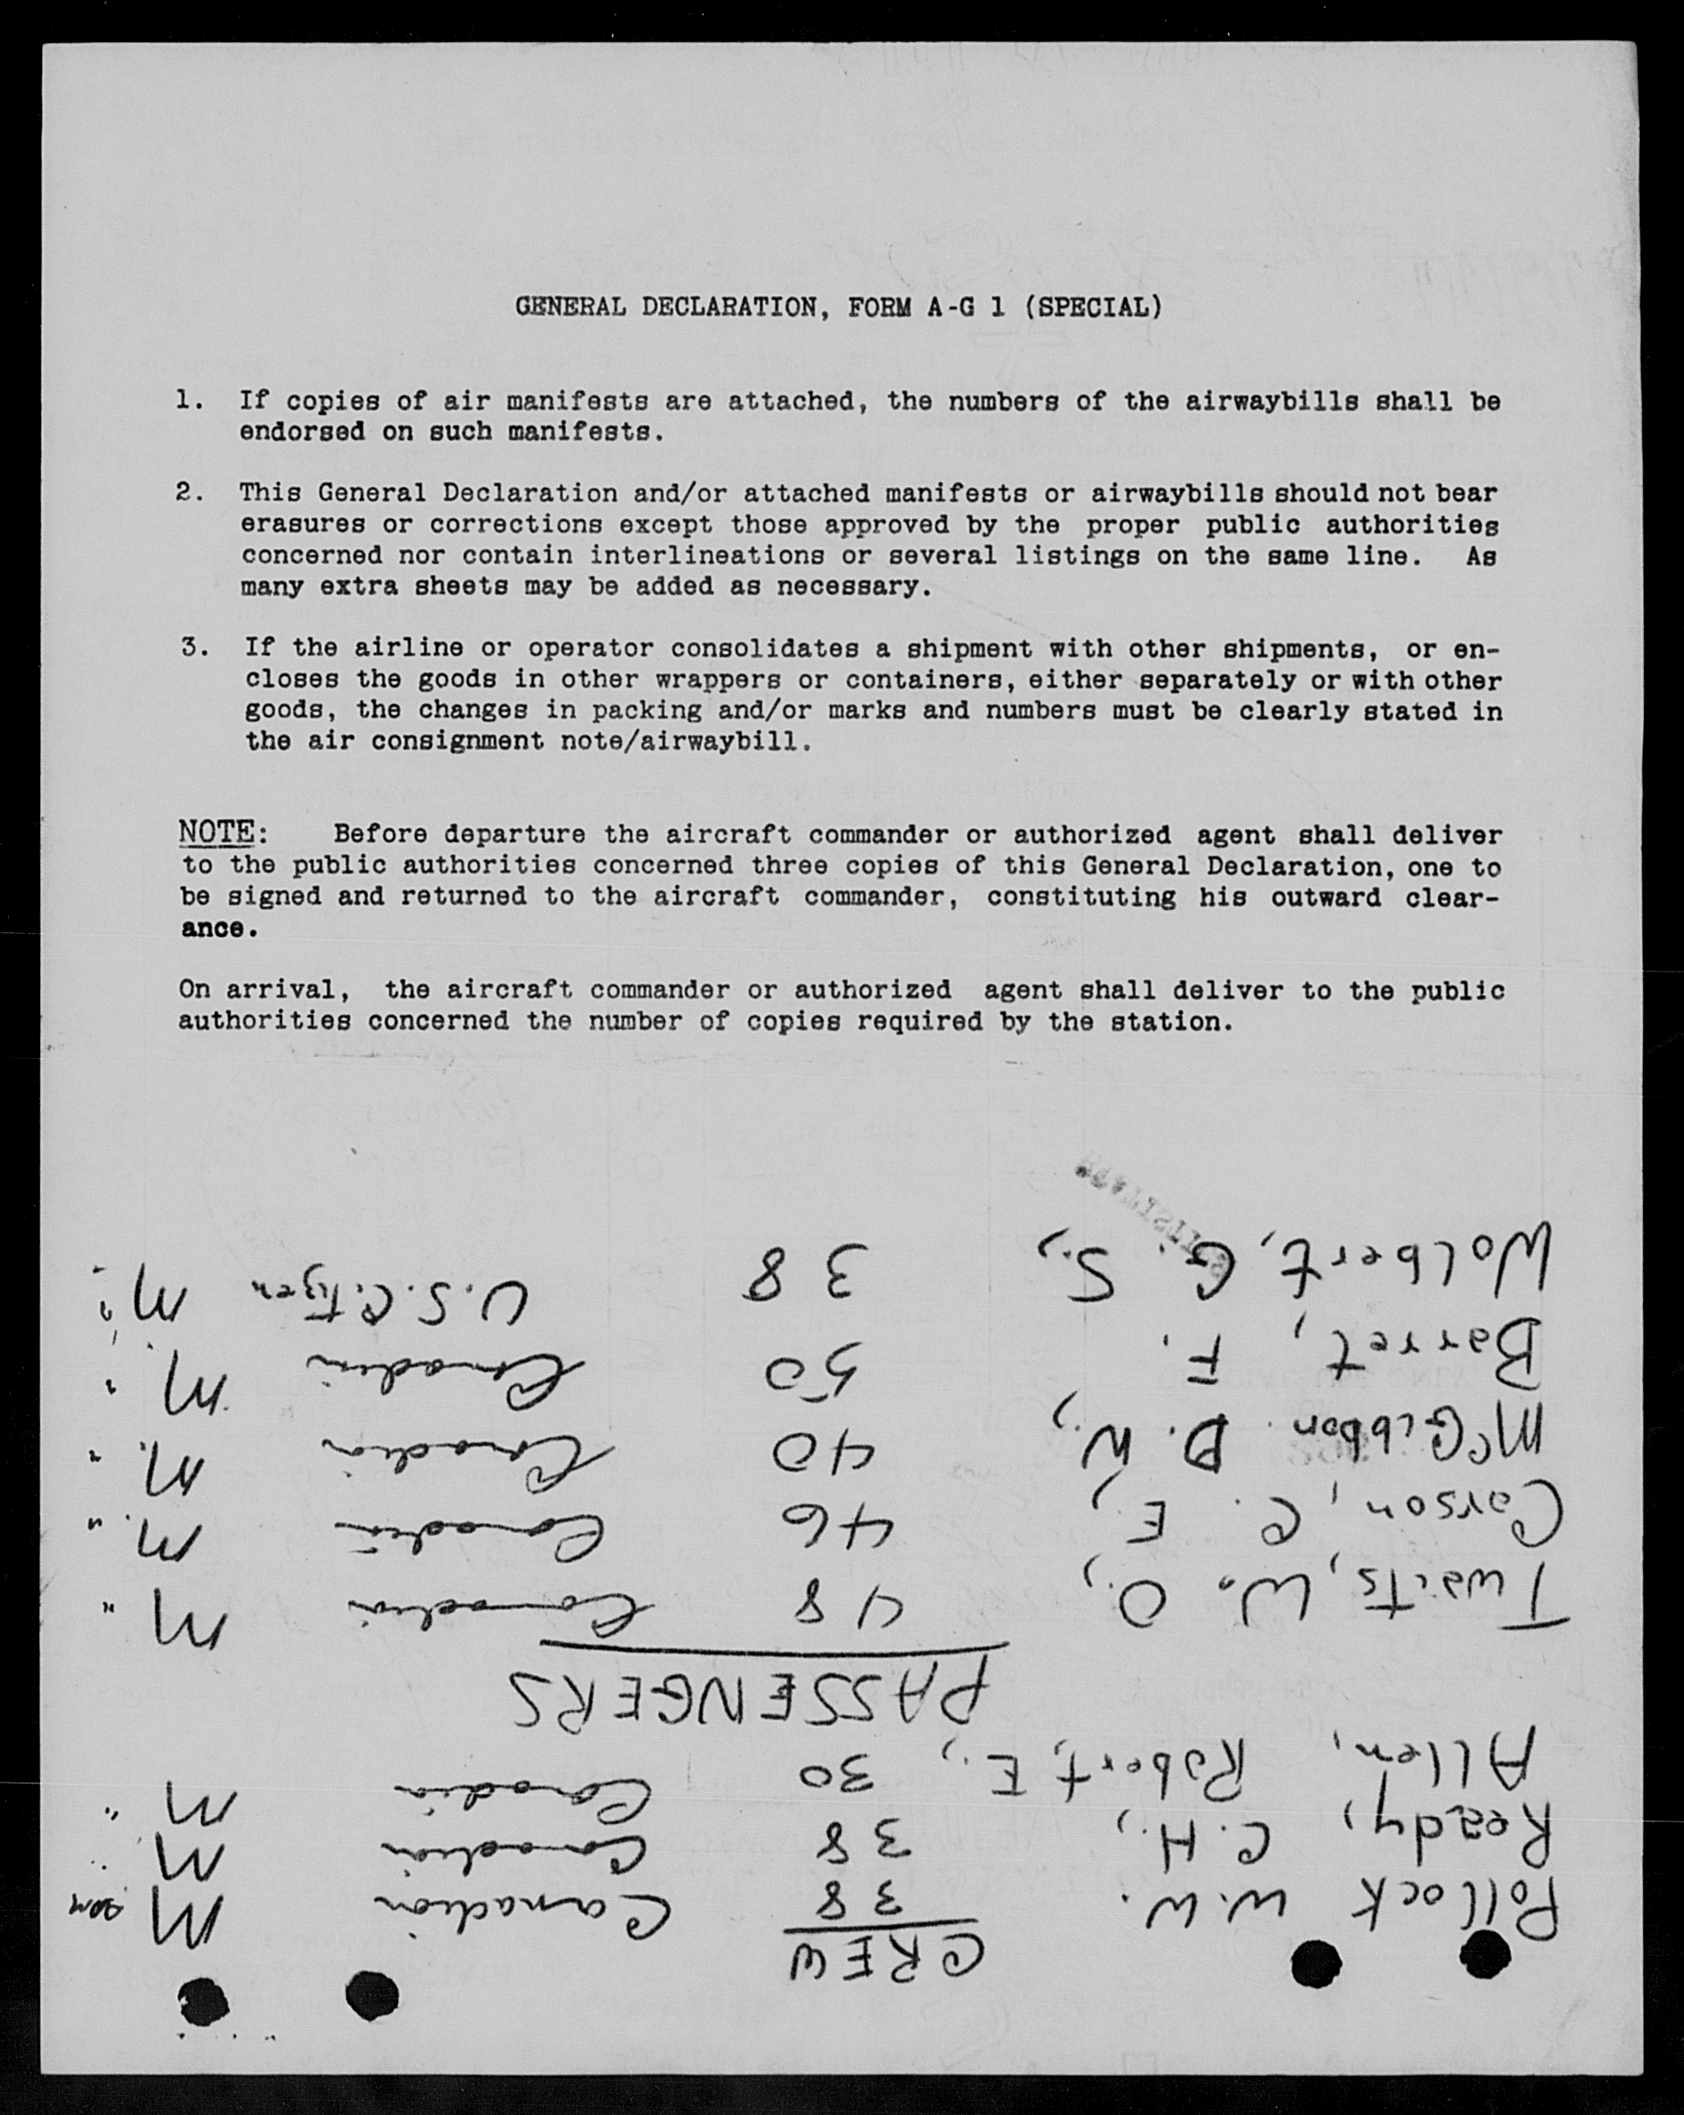 GENERAL DECLARATION, FORM A-G 1 (SPECIAL)
1. If copies of air manifests are attached, the numbers of the airwaybills shall be
endorsed on such manifests.
2. This General Declaration and/or attached manifests or airwaybills should not bear
erasures or corrections except those approved by the proper public authorities
concerned nor contain interlineations or several listings on the same line. As
many extra sheets may be added as necessary.
3. If the airline or operator consolidates a shipment with other shipments, or en-
closes the goods in other wrappers or containers, either separately or with other
goods, the changes in packing and/or marks and numbers must be clearly stated in
the air consignment note/airwaybill.
NOTE: Before departure the aircraft commander or authorized agent shall deliver
to the public authorities concerned three copies of this General Declaration, one to
be signed and returned to the aircraft commander, constituting his outward clear-
ance.
On arrival, the aircraft commander or authorized agent shall deliver to the public
authorities concerned the number of copies required by the station.
CREW
Pollock W.W. 38 Canadian M
Ready, C.H., 38 Canadian M "
Allen, Robert, E., 30 Canadian M "
PASSENGERS
Twaits, W. O., 48 Canadian M "
Carson, C. E., 46 Canadian M. "
McGibbon D. W., 40 Canadian M. "
Barret, F. 50 Canadian M. "
Wolbert, G. S., 38 U.S. Citizen M. "